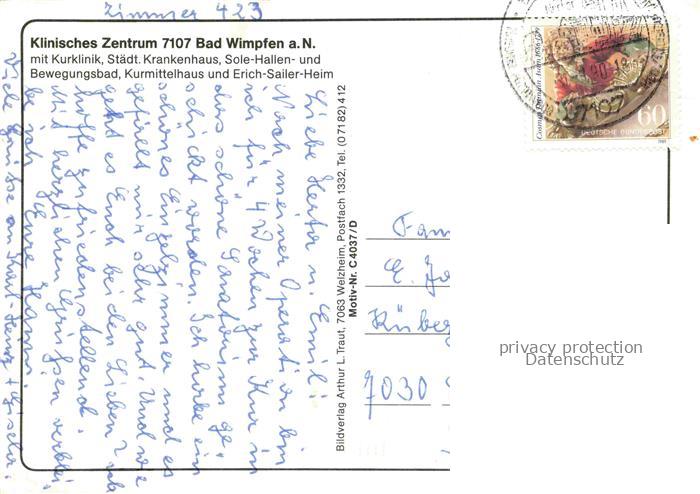 Zimmer 423
Klinisches Zentrum 7107 Bad Wimpfen a. N.
mit Kurklinik, Städt. Krankenhaus, Sole-Hallen- und
Bewegungsbad, Kurmittelhaus und Erich-Sailer-Heim
Liebe Herta u. Emil!
Nach meiner Operation bin
ich für 4 Wochen zur Kur in
das schöne Sanatorium ge-
schickt worden. Ich habe ein
schönes Einzelzimmer und es
gefällt mir sehr gut. Und wie
geht es Euch beiden Lieben? Ich
hoffe zufriedenstellend.
Mit herzlichen Grüßen verblei-
be ich Eure Hanni.
Viele Grüße an
Bildverlag Arthur L. Traut, 7063 Welzheim, Postfach 1332, Tel. (07182) 412
Motiv-Nr. C 4037/D
Cosmas Damian Asam 1686-1739
60
DEUTSCHE BUNDESPOST
7107
Fam
E.
7030
privacy protection
Datenschutz